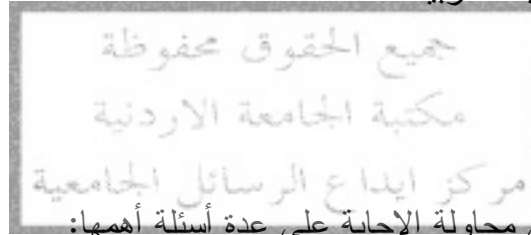 جميع الحقوق محفوظة
مكتبة الجامعة الاردنية
مركز ايداع الرسائل الجامعية
محاولة الإجابة على عدة أسئلة أهمها: